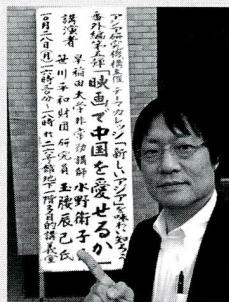 アジア研究機構主催 テーマカレッジ「新しいアジアを味わい知ろう」
番外編第五弾
「映画で中国を愛せるか」
講演者
早稲田大学非常勤講師 水野衛子氏
笹川平和財団 研究員 玉腰辰己氏
一〇月二八日(月)一六時三〇分〜一八時 於二六号館地下一階多目的講義室